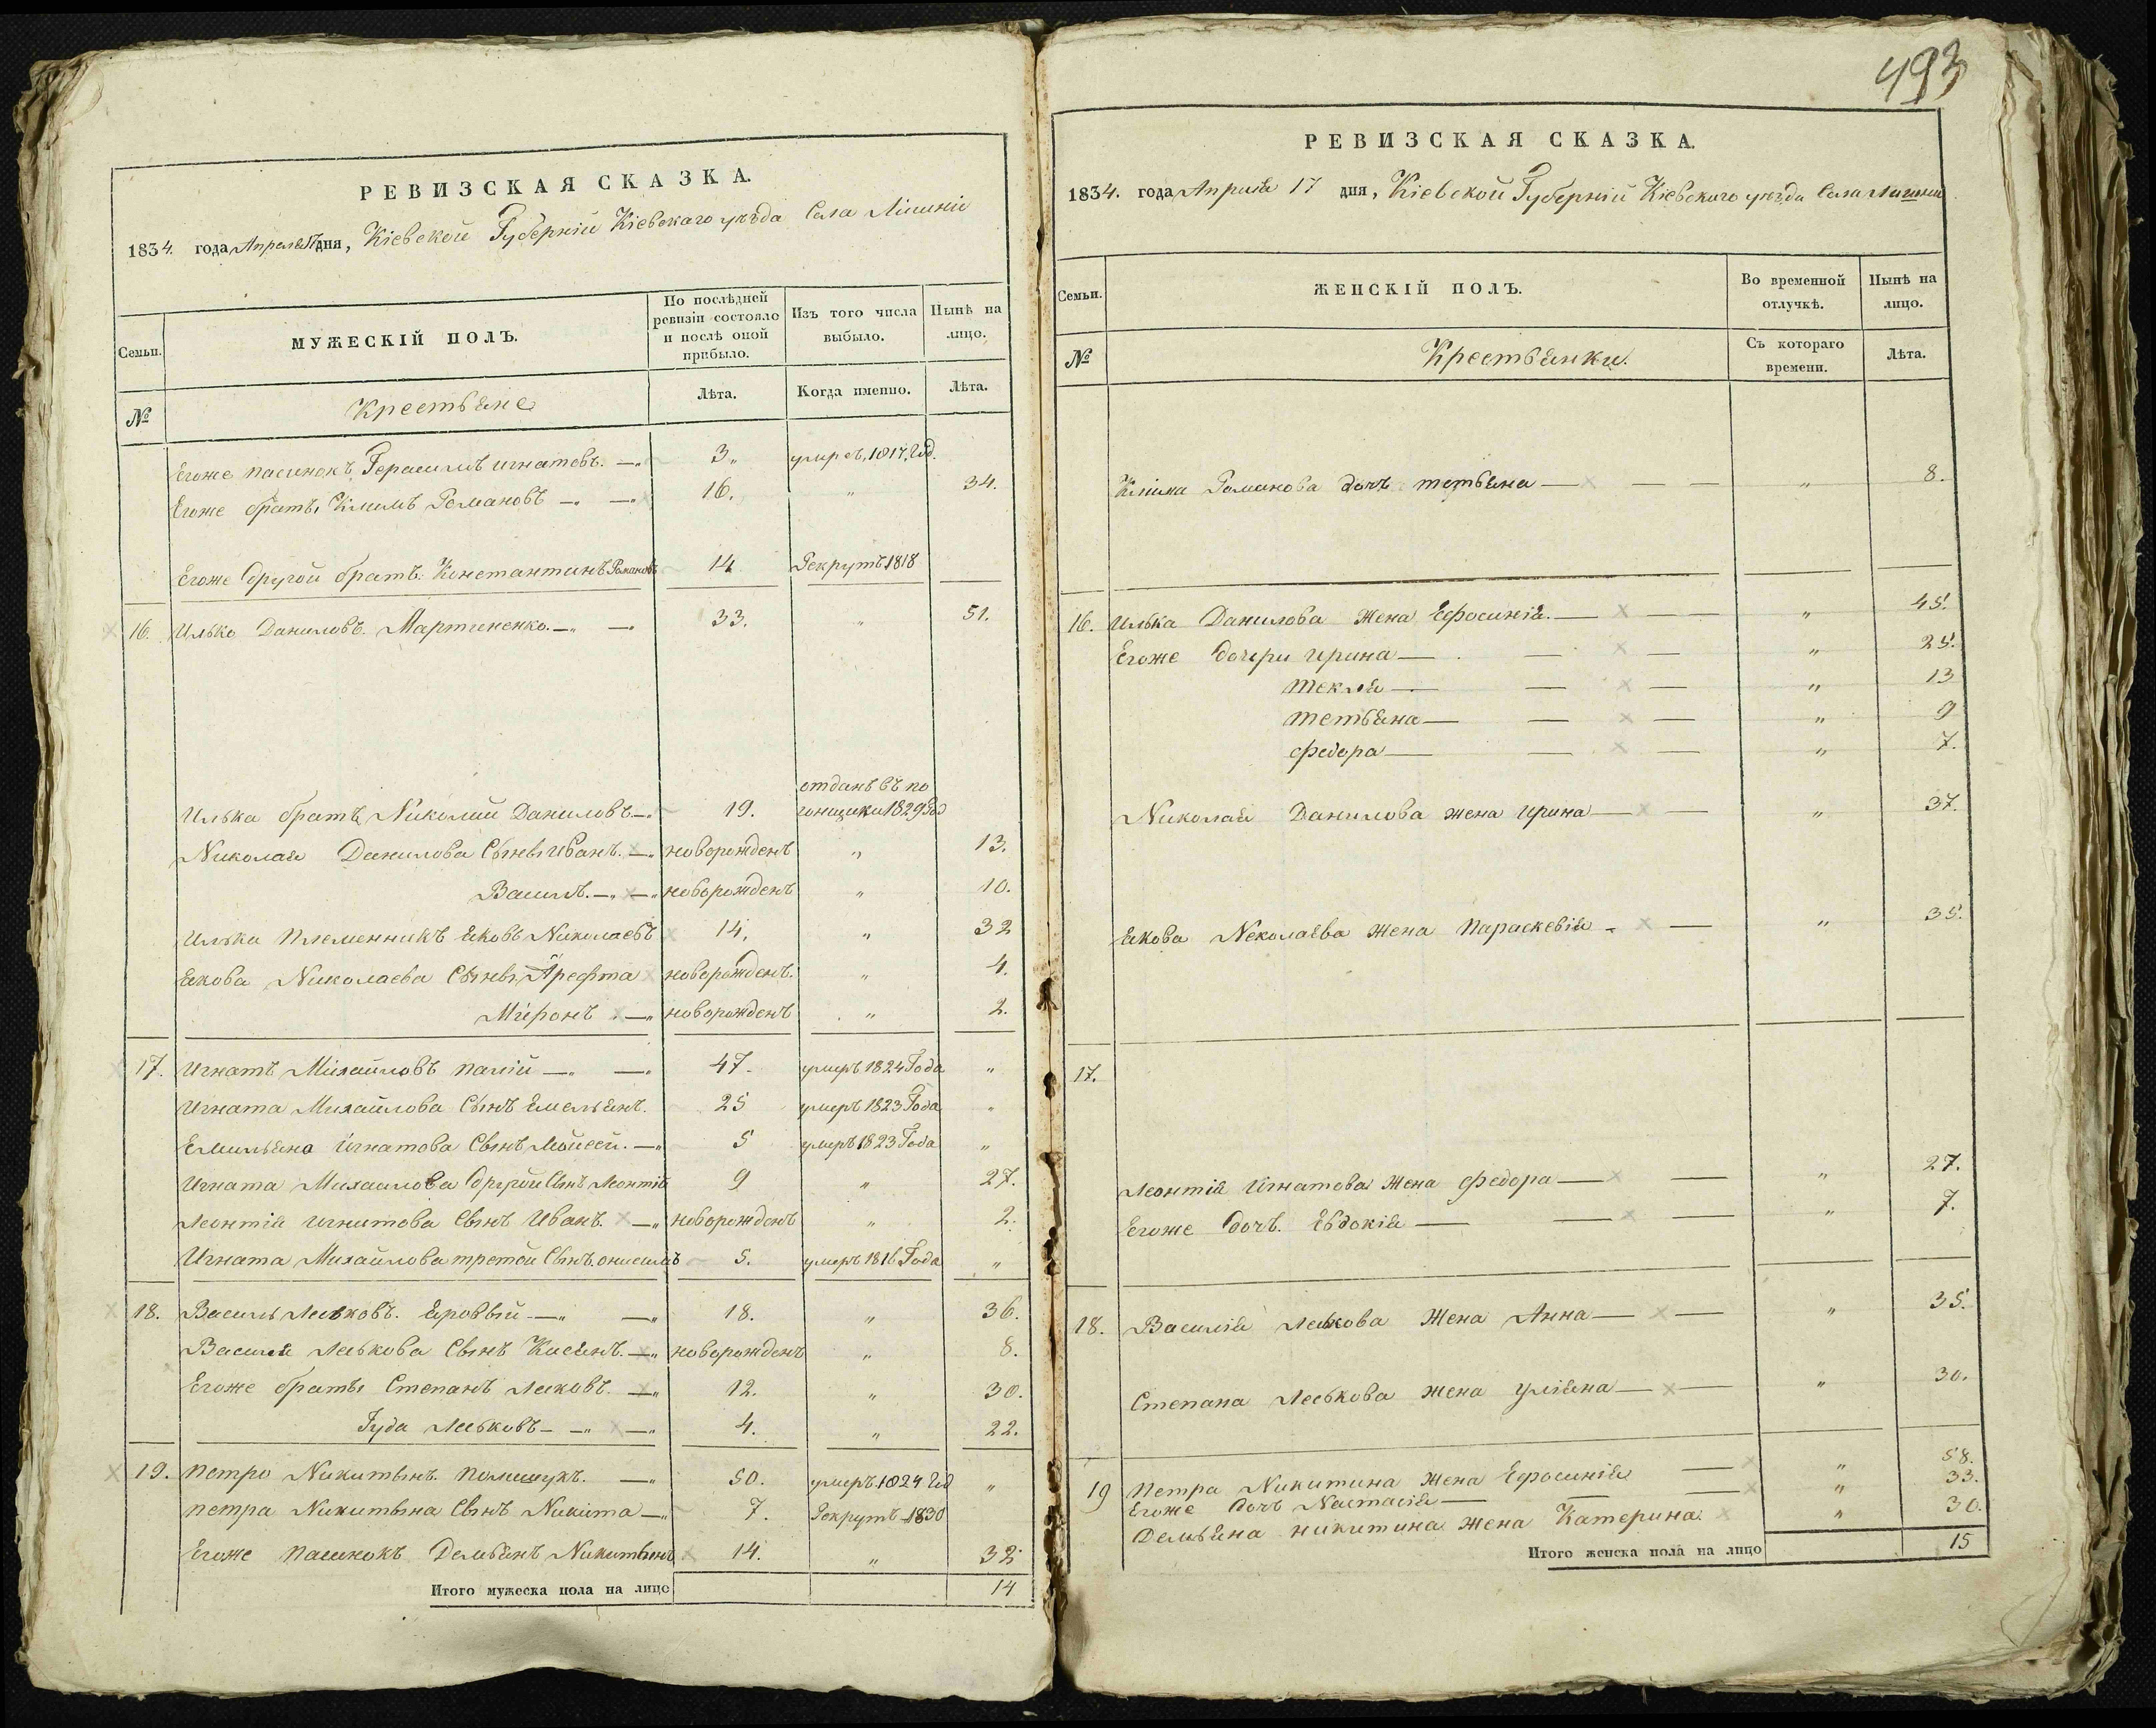 РЕВИЗСКАЯ СКАЗКА.
1834. года Апреля 17 дня, Кіевской Губерніи Кіевскаго уѣзда Села Лішні
Семьи.
МУЖЕСКІЙ ПОЛЪ.
По послѣдней ревизіи состояло и послѣ оной прибыло.
Изъ того числа выбыло.
Нынѣ на лицо.
№
Крестьяне
Лѣта.
Когда именно.
Лѣта.
Егоже пасинокъ, Герасимъ игнатовъ. 3 умре, 1817, Год.
Егоже братъ, Климъ Романовъ 16. „ 34.
Егоже другой братъ. Константинъ Романовъ 14 Рекрутъ 1818
16. Илько Даниловъ. Мартиненко. 33. „ 51.
отданъ въ по
Илька братъ Николай Даниловъ 19. гонщики 1829 Год
Николая Данилова Сыны Иванъ. новорожденъ „ 13.
Василь. новорожденъ „ 10.
Илька Племенникъ Яковъ Николаевъ 14, „ 32
Якова Николаева Сыны Арефта новорожденъ. „ 4.
Міронъ новорожденъ „ 2.
17. Игнатъ Михайловъ палій 47. умеръ 1824 Года „
Игната Михайлова Сынъ Емельянъ. 25 умеръ 1823 Года „
Емильяна Игнатова Сынъ Мойсей. 5 умеръ 1823 Года „
Игната Михаилова другой Сынъ Леонтій 9 „ 27.
Леонтія игнатова Сынъ Иванъ. новорожденъ „ 2.
Игната Михайлова третой Сынъ. онисимъ 5. умеръ 1816 Года „
18. Василь Леськовъ. Яровый 18. „ 36.
Василя Леськова Сынъ Касянъ. новорожденъ „ 8.
Егоже братьы Степанъ Лесковъ. 12. „ 30.
Іуда Леськовъ 4. „ 22.
19. петро Никитынъ. полищукъ. 50. умеръ 1824 Год „
петра Никитына Сынъ Никита 7. Рекрутъ 1830
Егоже пасинокъ Демьянъ Никитынъ 14. „ 32
Итого мужеска пола на лицо 14
493
РЕВИЗСКАЯ СКАЗКА.
1834. года Апреля 17 дня, Кіевской Губерніи Кіевскаго уѣзда Села Лишни
Семьи.
ЖЕНСКІЙ ПОЛЪ.
Во временной отлучкѣ.
Нынѣ на лицо.
№
Крестьянки.
Съ котораго времени.
Лѣта.
Клима Романова дочь тетьяна „ 8.
16. Илька Данилова жена Ефросинія. „ 45.
Егоже дочери ирина „ 25.
текля „ 13
тетьяна „ 9
федора „ 7.
Николая Данилова жена ирина „ 37.
Якова Николаева жена параскевія „ 35.
17.
Леонтія Игнатова жена федора „ 27.
Егоже дочь. Евдокія „ 7.
18. Василія Леськова жена Анна „ 35.
Степана Леськова жена уліяна „ 30.
19 Петра Никитина жена Ефросинія „ 58.
Егоже дочь Настасія „ 33.
Демьяна никитина жена Катерина „ 30.
Итого женска пола на лицо 15